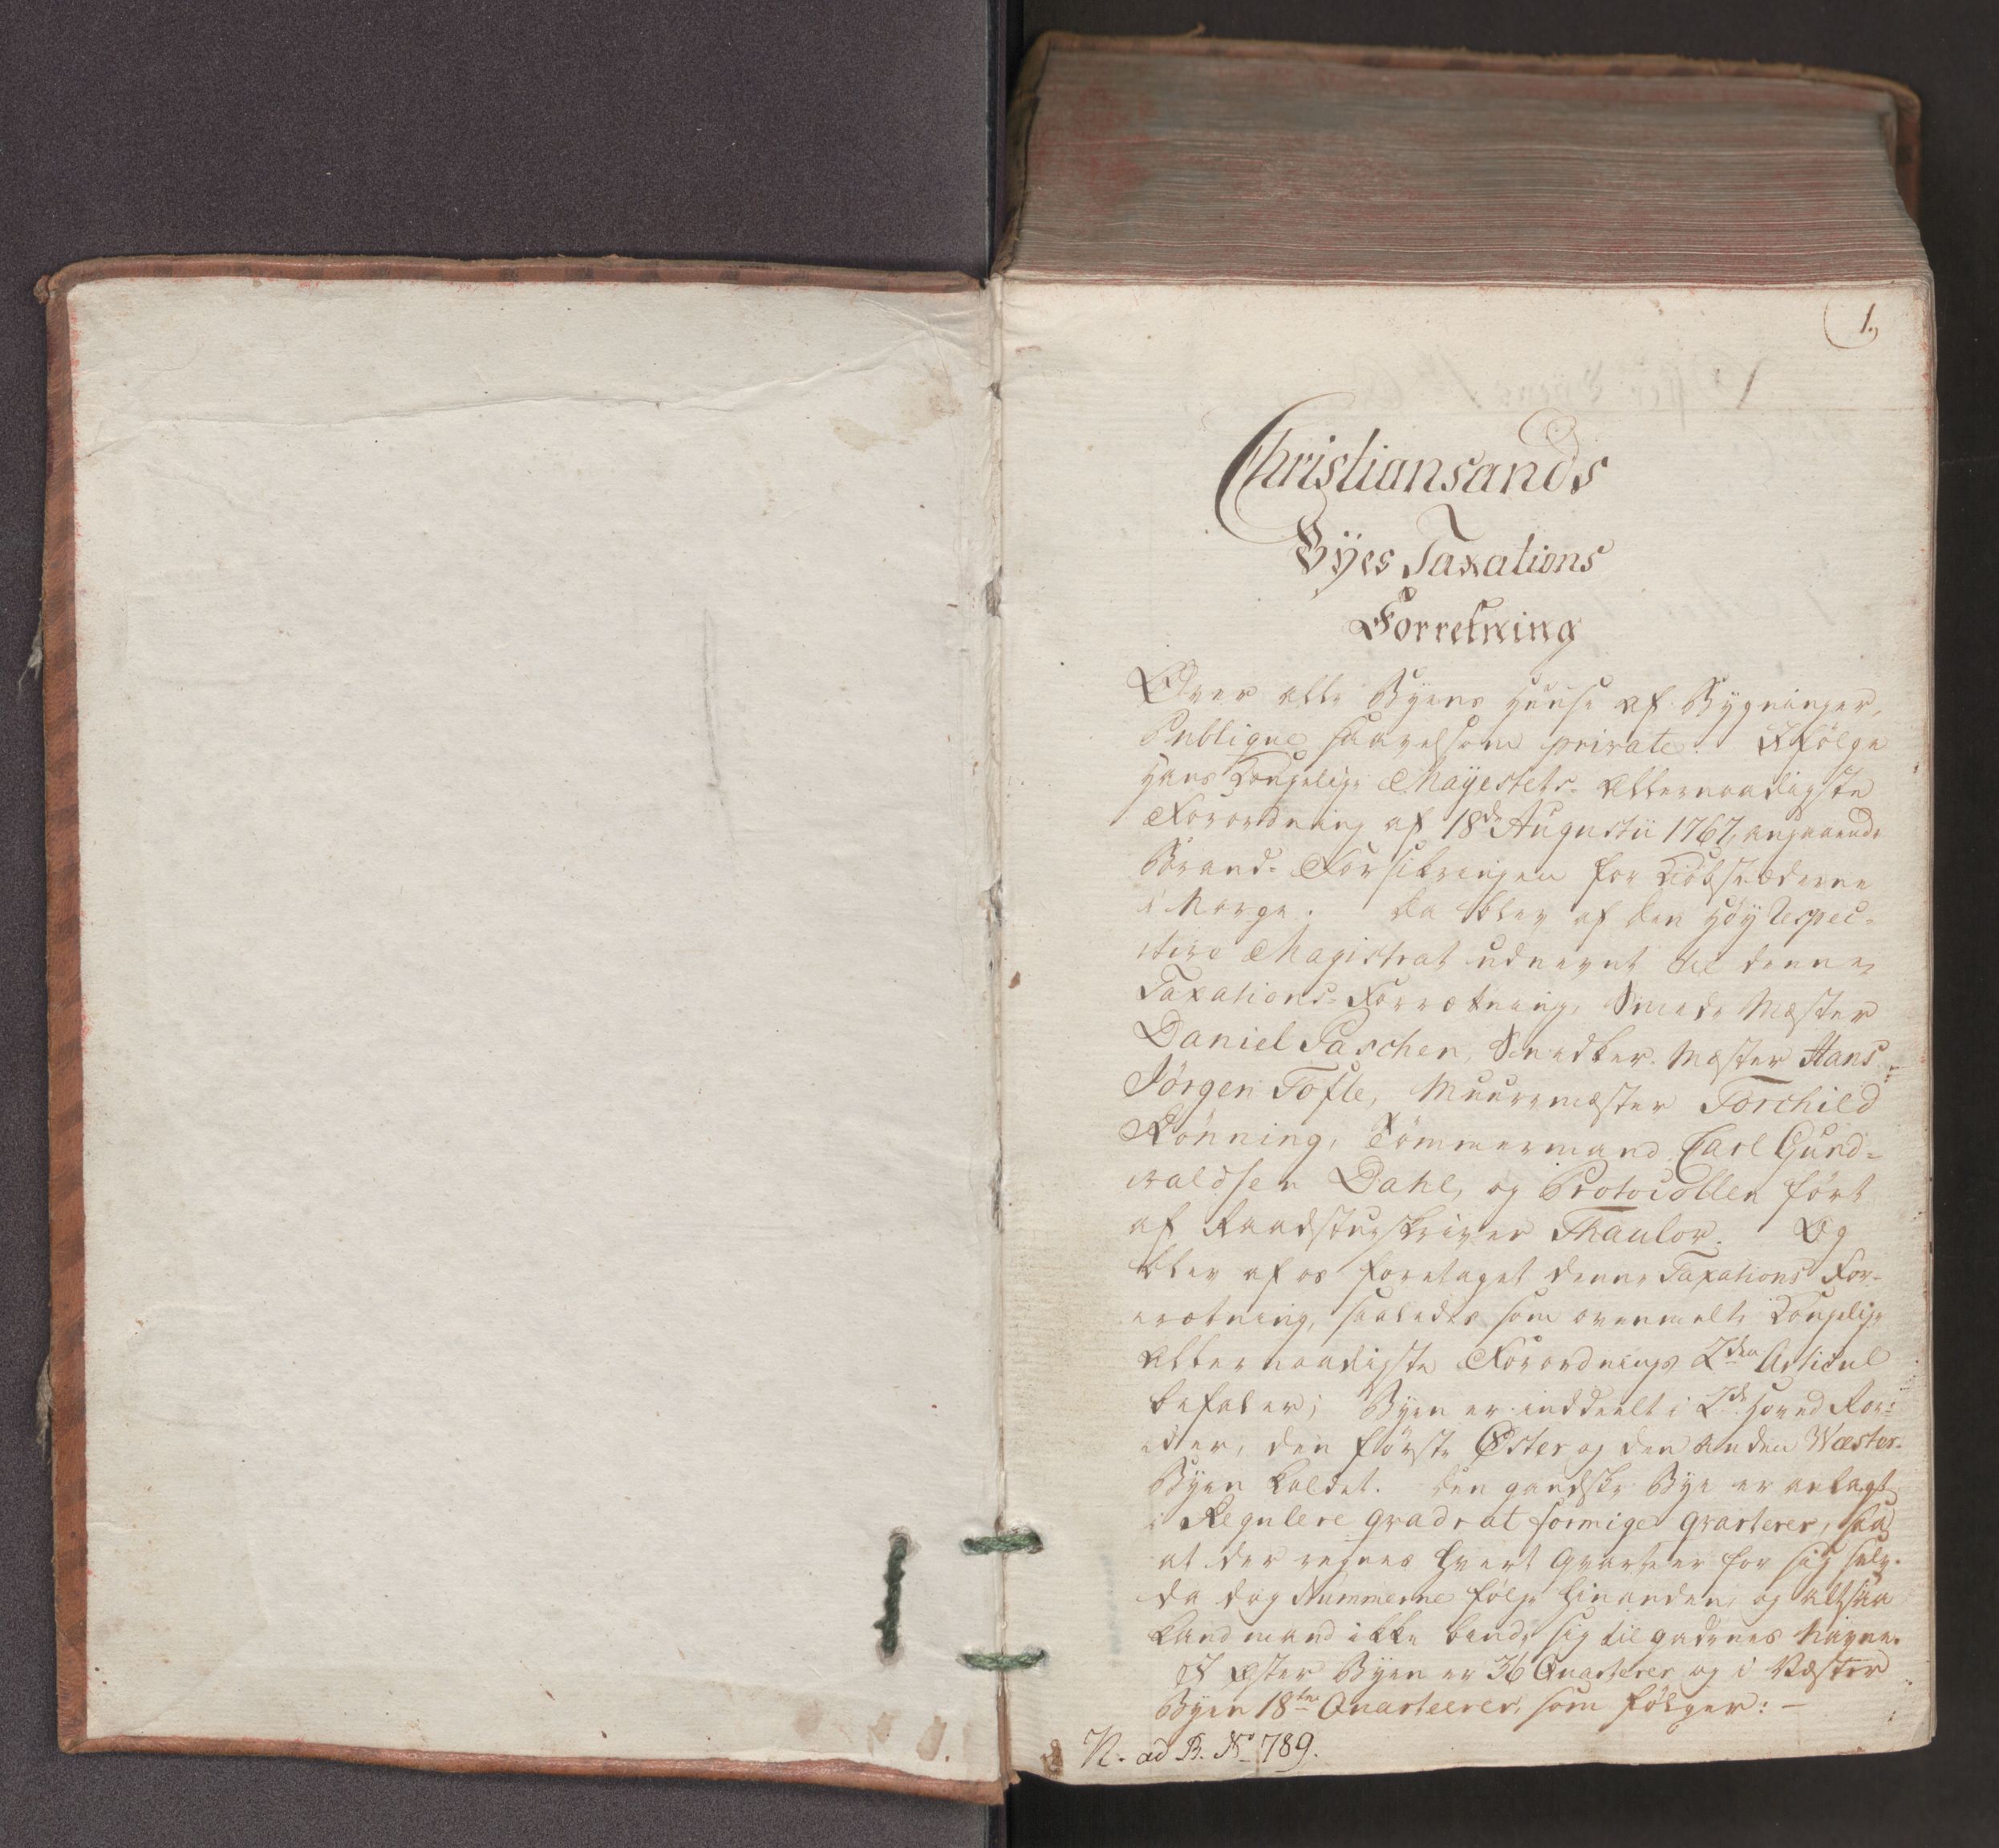 1.
Christiansands
Byes Taxations
Forretning
Over alle Byens Huuse af Bygninger,
Publique saavelsom private. Ifølge
Hans Kongelige Mayestets Allernaadigste
Forordning af 18de Augustii 1767, angaaende
Brand-Forsikringen for Kiøbstæderne
i Norge. Da blev af den Høy Respec-
tive Magistrat udnevnt til denne
Taxations-Forrætning, Smede Mæster
Daniel Paschen, Snedker-Mæster Hans
Jørgen Tofte, Muurmæster Torchild
Rønning, Tømmermand Carl Gund-
valdsen Dahl, og Protocollen ført
af Raadstueskriver Thaulov. Og
blev af os foretaget denne Taxations For-
rætning, saaledes som ovenmelte Kongelige
Allernaadigste Forordnings 2den Articul
befaler; Byen er inddeelt i 2de Hoved Ro-
der, den første Øster og den anden Wæster-
Byen kaldet. Den gandske Bye er anlagt
i Regulere Qvadrat formige Qvarterer, saa
at der regnes hvert Qvarteer for sig selv.
da dog Nummerne følge hinanden, og altsaa
kand mand ikke binde sig til gadernes Navne.
I Øster Byen er 36 Quarterer og i Væster
Byen 18ten Quarteerer, som følger: -
N. ad B. No 789.